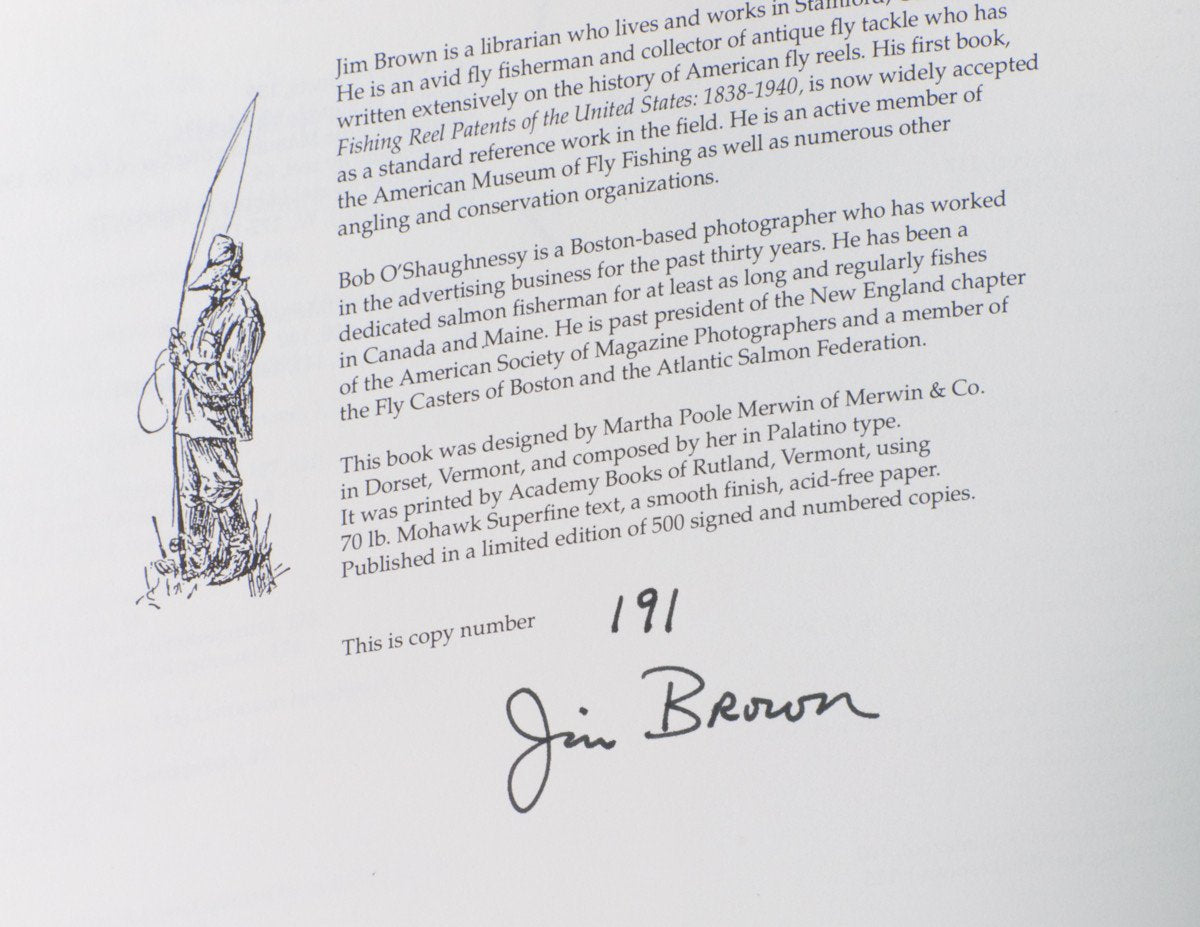 Jim Brown is a librarian who lives and works in Stamford,
He is an avid fly fisherman and collector of antique fly tackle who has
written extensively on the history of American fly reels. His first book,
Fishing Reel Patents of the United States: 1838-1940, is now widely accepted
as a standard reference work in the field. He is an active member of
the American Museum of Fly Fishing as well as numerous other
angling and conservation organizations.
Bob O'Shaughnessy is a Boston-based photographer who has worked
in the advertising business for the past thirty years. He has been a
dedicated salmon fisherman for at least as long and regularly fishes
in Canada and Maine. He is past president of the New England chapter
of the American Society of Magazine Photographers and a member of
the Fly Casters of Boston and the Atlantic Salmon Federation.
This book was designed by Martha Poole Merwin of Merwin & Co.
in Dorset, Vermont, and composed by her in Palatino type.
It was printed by Academy Books of Rutland, Vermont, using
70 lb. Mohawk Superfine text, a smooth finish, acid-free paper.
Published in a limited edition of 500 signed and numbered copies.
This is copy number 191
Jim Brown